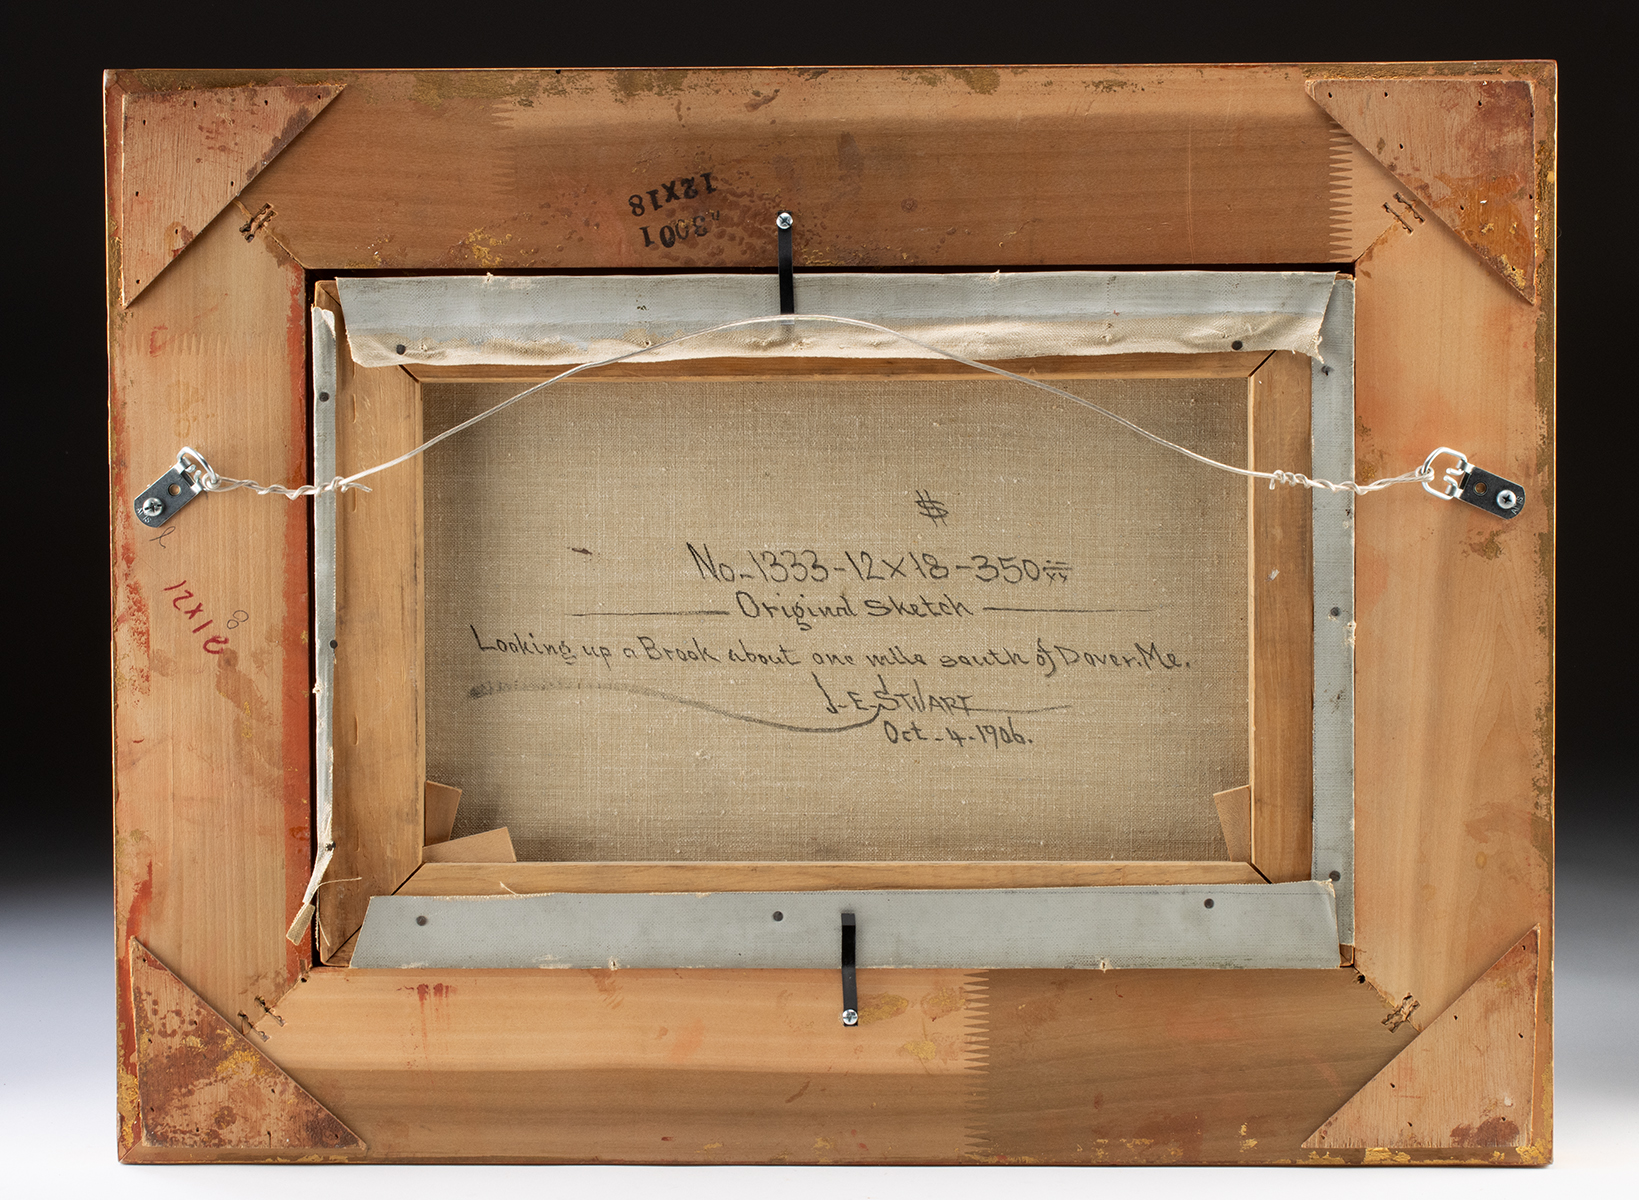 12X18
"3001
$
No-1333-12x18-350 xx
Original Sketch
Looking up a Brook about one mile south of Dover. Me.
J-E-STUART
Oct-4-1906.
12X18